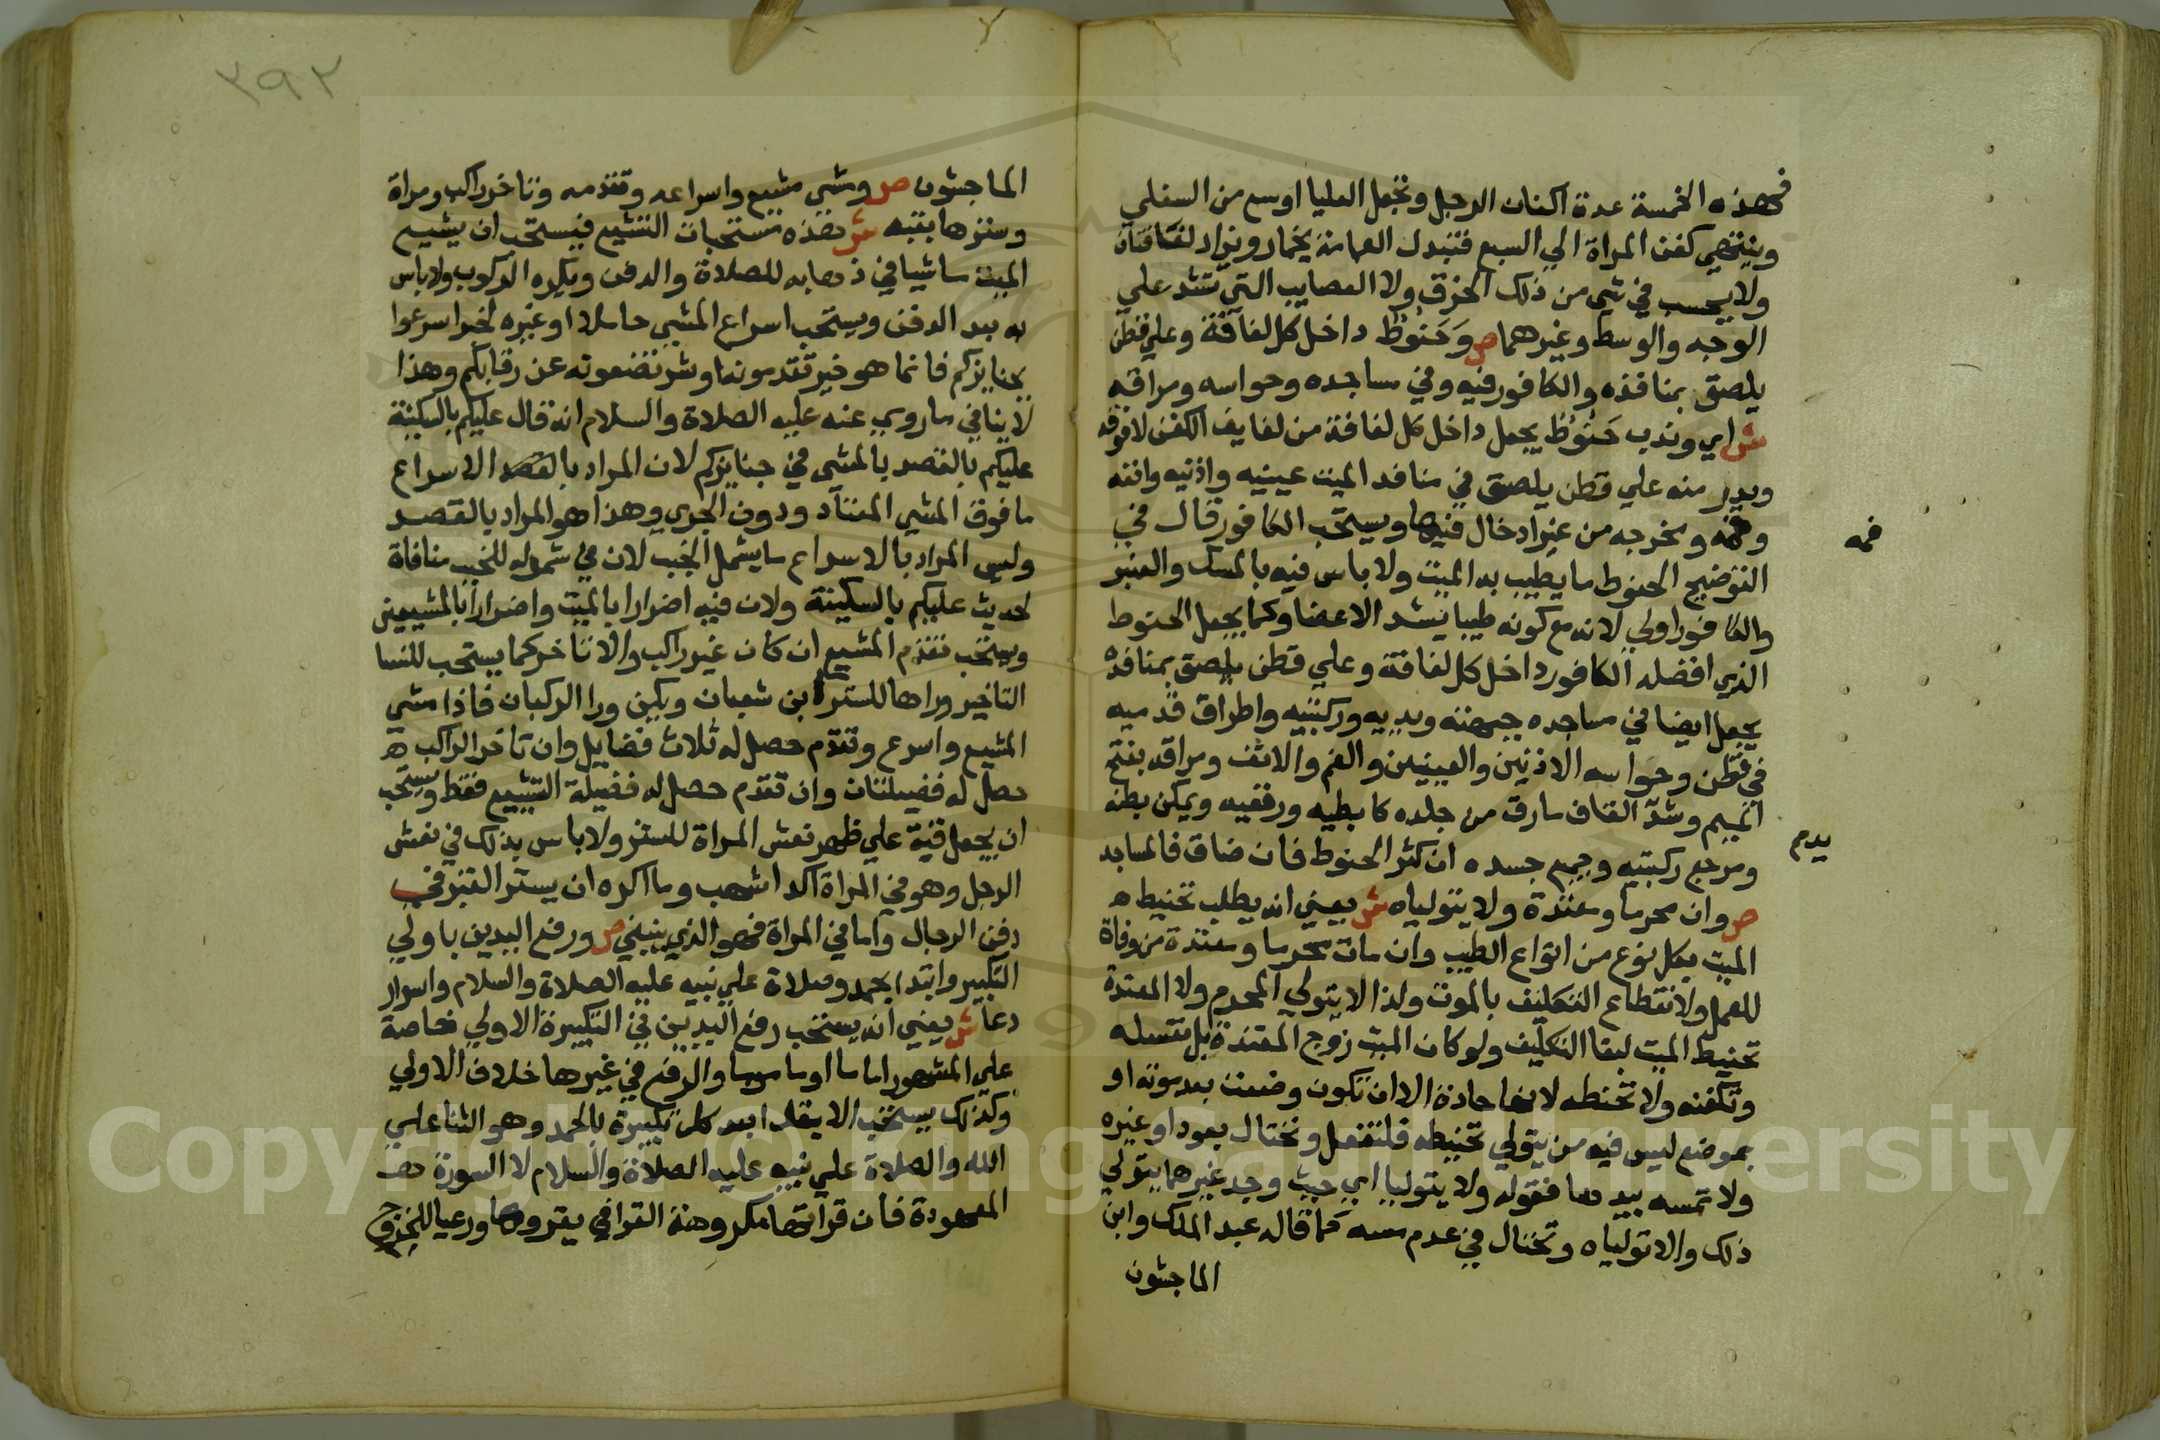 فهذه الخمسة عدة اكفان الرجل وتجعل العليا اوسع من السفلي
وينتهي كفن المراة الي السبع فتبدل العمامة بخمار ويزاد لفافتان
ولا يحسب في شي من ذلك الخرق ولا العصايب التي تشد علي
الوجه والوسط وغيرهما ص وَحَنُوُطٌ داخل كل لفافة وعلي قطن
يلصق بمنافذه والكافور فيه وفي مساجده وحواسه ومراقه
ش اي وندب حَنُوُطٌ يجعل داخل كل لفافة من لفايف الكفن لا فوقه
ويدر منه علي قطن يلصق في منافد الميت عينيه واذنيه وانفه
وفمه ومخرجه من غير ادخال فيها ويستحب الكافور قال في
فمه
التوضيح الحنوط ما يطيب به الميت ولا باس فيه بالمسك والعنبر
والكافور اولي لانه مع كونه طيبا يشد الاعضا وكما يجعل الحنوط
الذي افضله الكافور داخل كل لفافة وعلي قطن يلصق بمنافذه
يجعل ايضا في مساجده جبهته ويديه وركبتيه واطراف قدميه
في قطن وحواسه الاذنين والعينين والفم والانف ومراقه بفتح
الميم وشد القاف مارق من جلده كابطيه ورفغيه ويمكن بطنه
ومرجع ركبتيه وجميع جسده ان كثر الحنوط فان ضاق فالمساجد
يدم
ص وان محرما ومعتدة ولا يتولياه ش يعني انه يطلب تحنيط ه
الميت بكل نوع من انواع الطيب وان مات محرما ومعتدة من وفاة
للعمل ولانقطاع التكليف بالموت ولذا لا يتولي المحرم ولا المعتدة
تحنيط الميت لبقا التكليف ولو كان الميت زوج المعتدة بل تغسله
وتكفنه ولا تحنطه لانها حادة الا ان تكون وضعت بعد موته او
بموضع ليس فيه من يتولي تحنيطه فلتفعل وتحتال بعود او غيره
ولا تمسه بيدها فقوله ولا يتوليا اي حيث وجد غيرهما يتولي
ذلك والا تولياه وتحتال في عدم مسه كما قاله عبد الملك وابن
الماجشون
٣٩٢
الماجشون ص ومشي مشيع واسراعه وتقدمه وتاخر راكب ومراة
وسترها بقبه ش هذه مستحبات التشيع فيستحب ان يشيع
الميت ماشيا في ذهابه للصلاة والدفن ويكره الركوب ولا باس
به بعد الدفن ويستحب اسراع المشي حاملا او غيره لخبر اسرعوا
بجنايزكم فانما هو خير تقدمونه او شر تضعونه عن رقابكم وهذا
لا ينافي ما روي عنه عليه الصلاة والسلام انه قال عليكم بالسكينة
عليكم بالقصد بالمشي في جنايزكم لان المراد بالقصد الاسراع
ما فوق المشي المعتاد ودون الجري وهذا هو المراد بالقصد
وليس المراد بالاسراع ما يشمل الخبب لان في شموله للخبب منافاة
لحديث عليكم بالسكينة ولان فيه اضرارا بالميت واضرارا بالمشيعين
ويستحب تقدم المشيع ان كان غير راكب والا تاخر كما يستحب للنسا
التاخير وراها للستر ابن شعبان ويكن ورا الركبان فاذا مشي
المشيع واسرع وتقدم حصل له ثلاث فضايل وان تاخر الراكب ه
حصل له فضيلتان وان تقدم حصل له فضيلة التشييع فقط ويستحب
ان يجعل قبة علي ظهر نعش المراة للستر ولا باس بذلك في نعش
الرجل وهو في المراة اكد اشهب وما اكره ان يستر القبر في
دفن الرجال واما في المراة فهو الذي ينبغي ص ورفع اليدين باولي
التكبير وابتدا بحمد وصلاة علي نبيه عليه الصلاة والسلام واسرار
دعا ش يعني انه يستحب رفع اليدين في التكبيرة الاولي خاصة
علي المشهور اماما او ماموما والرفع في غيرها خلاف الاولي
وكذلك يستحب الابتدا بعد كل تكبيرة بالحمد وهو الثنا علي
الله والصلاة علي نبيه عليه الصلاة والسلام لا السورة
المعهودة فان قراتها مكروهة القرافي يقروها ورعيا للخروج
Copyright © King Saud University